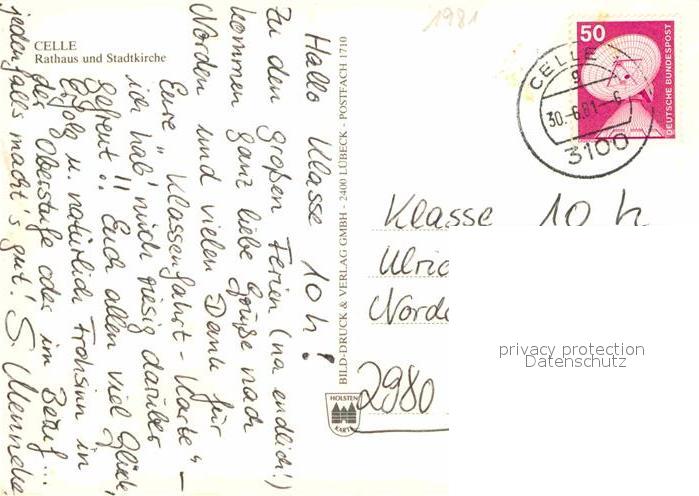 1981
CELLE
Rathaus und Stadtkirche
Hallo Klasse 10 h!
Zu den großen Ferien (na endlich!)
kommen ganz liebe Grüße nach
Norden und vielen Dank für
Eure „Klassenfahrt-Karte“ –
ich hab' mich riesig darüber
gefreut!! Euch allen viel Glück,
Erfolg u. natürlich Frohsinn in
der Oberstufe oder im Beruf...
jedenfalls macht's gut! S. Menneke
BILD-DRUCK & VERLAG GMBH - 2400 LÜBECK - POSTFACH 1710
HOLSTEN
KARTE
50
DEUTSCHE BUNDESPOST
CELLE
g
30.-6.81.-6
3100
Klasse 10 h
Ulric
Norde
2980
privacy protection
Datenschutz